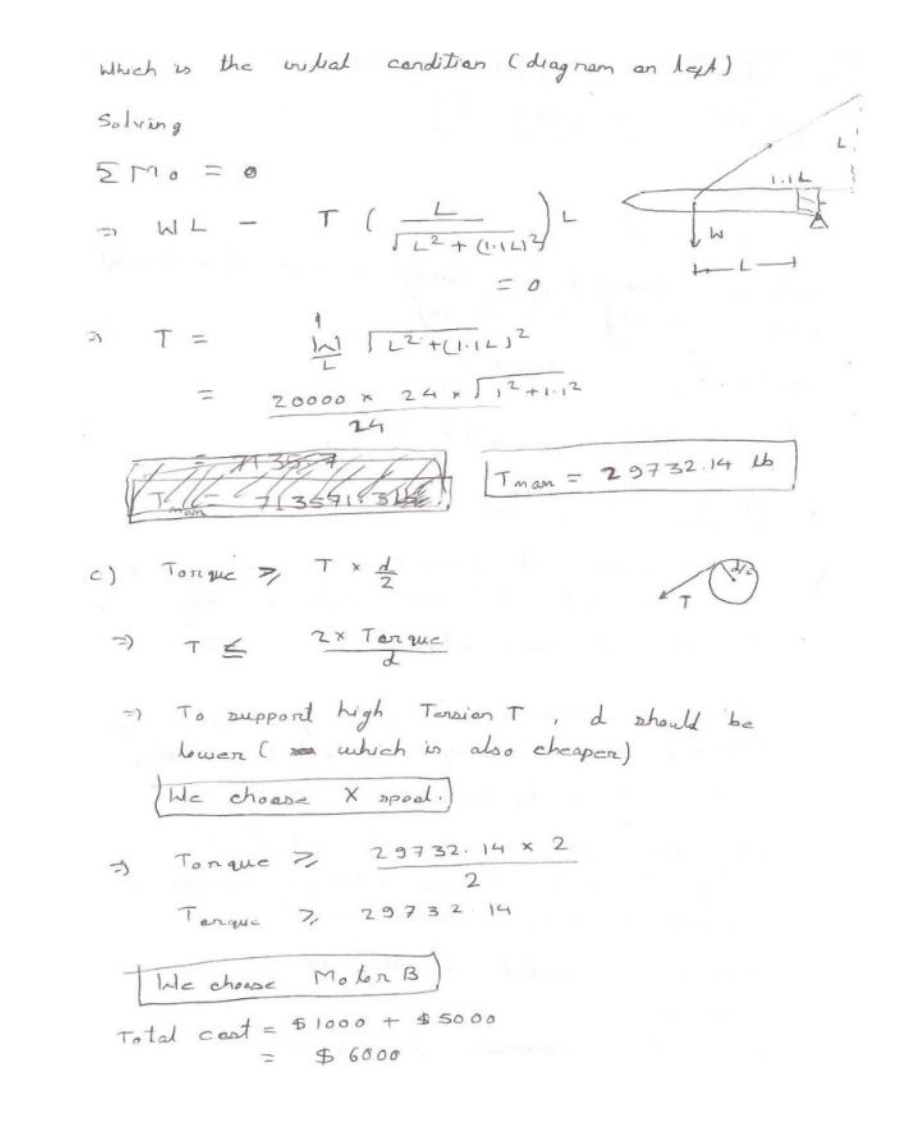 Which is the initial condition (diagram on left)
Solving
ΣMo = 0
L
1.1L
W
L
⇒ WL - T ( L / √(L² + (1.1L)²) ) L
= 0
⇒ T = W/L √L²+(1.1L)²
= 20000 × 24 × √1²+1.1² / 24
= 713557
Tman = 29732.14 lb
c) Torque ≥ T × d/2
d/2
T
⇒ T ≤ 2× Torque / d
⇒ To support high Tension T, d should be
lower ( which is also cheaper)
We choose X spool.
⇒ Torque ≥ 29732.14 × 2 / 2
Torque ≥ 29732.14
We choose Motor B
Total cost = $1000 + $5000
= $6000